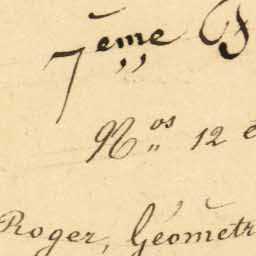 7ème F
Nos 12 e
Roger, Géometr